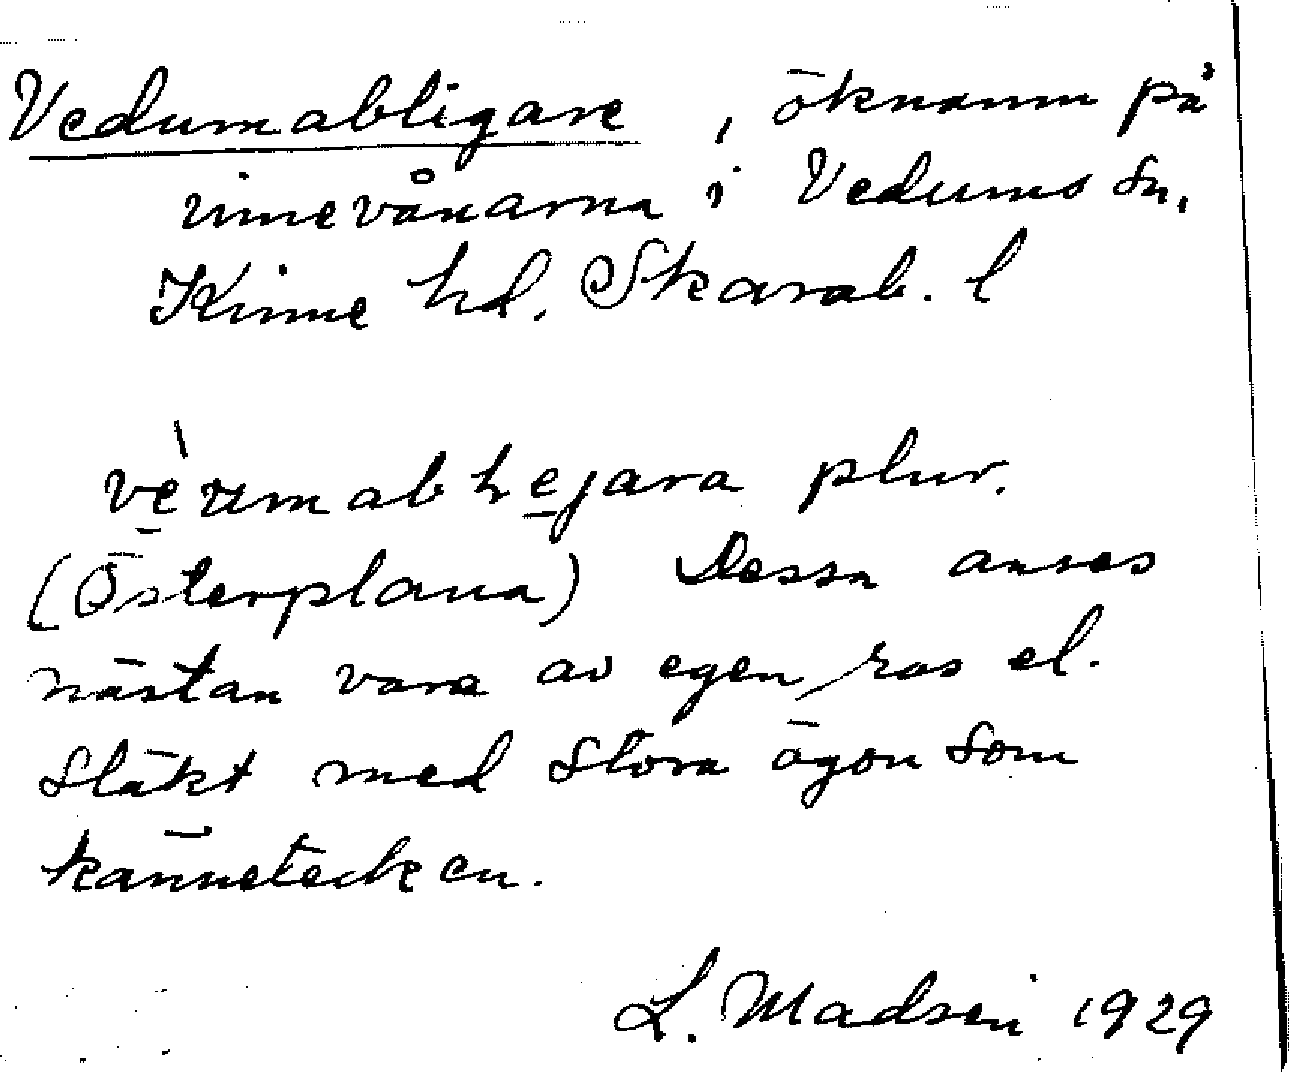 Vedumabligare, öknamn på
innevånarna i Vedums sn,
Kinne hd. Skarab. l
(Österplana) Dessa anses
nästan vara av egen ras el.
släkt med stora ögon som
kännetecken.
L. Madsén 1929